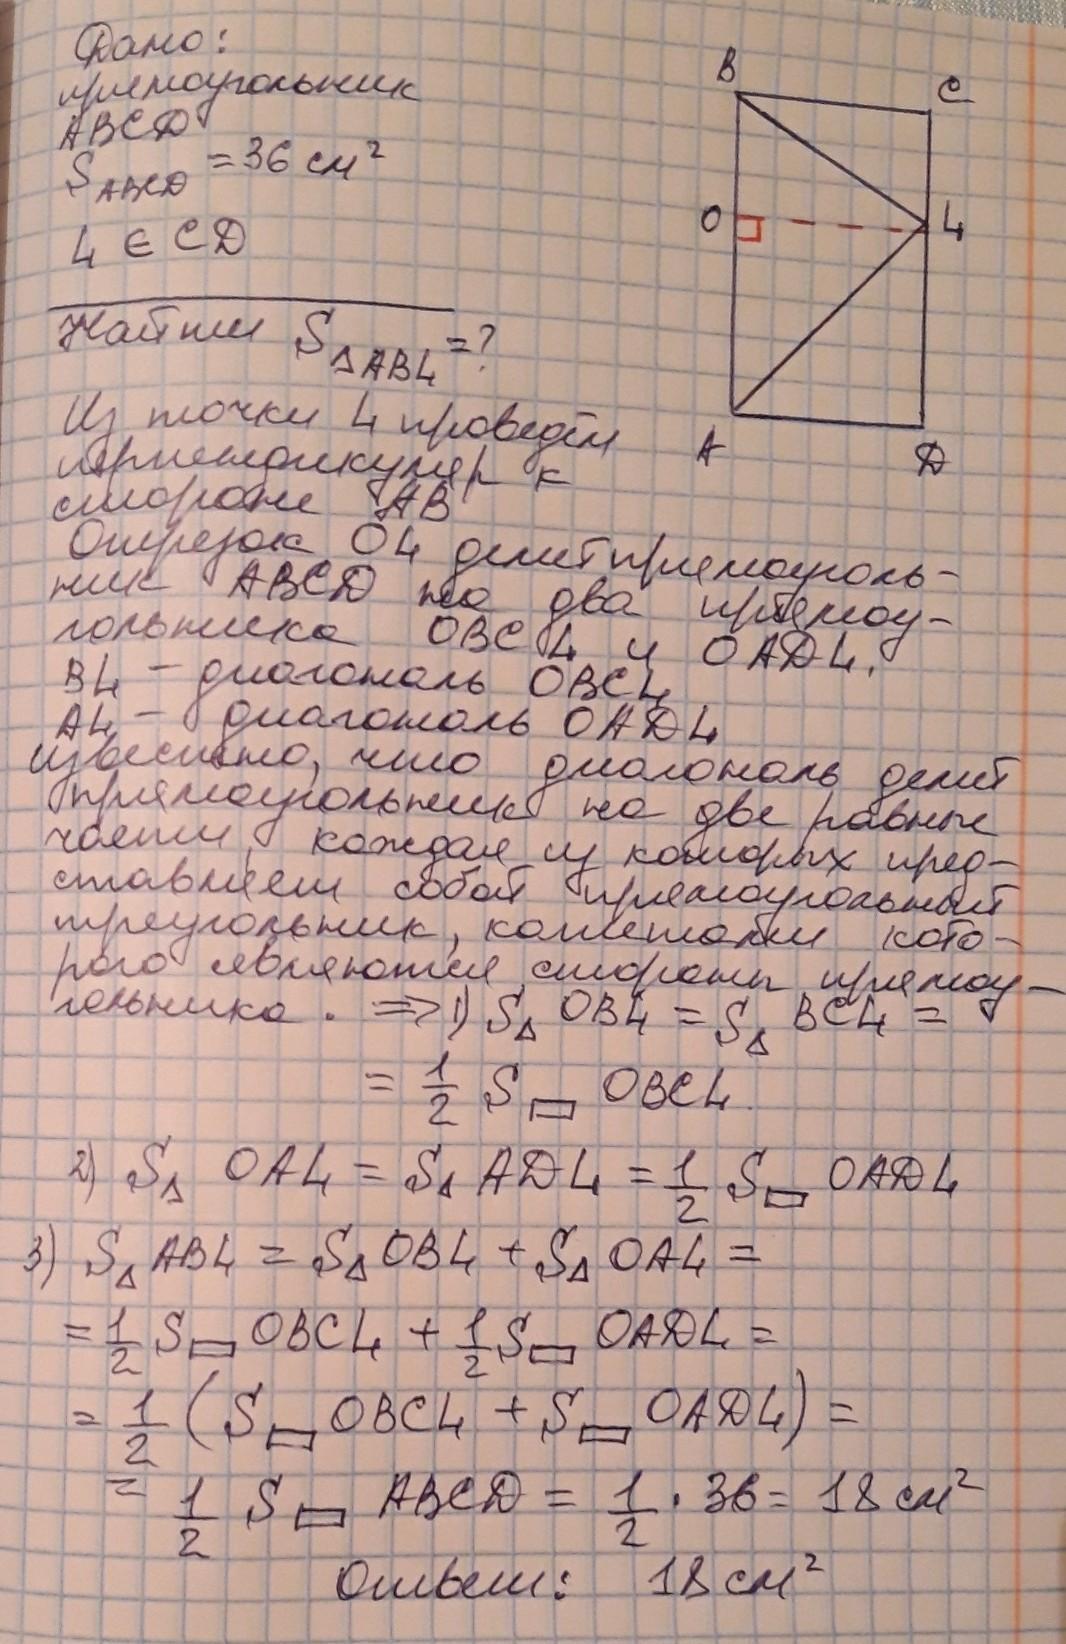 Дано:
прямоугольник
ABCD
S ABCD = 36 см²
4 ∈ CD
Найти S△ABL = ?
Из точки 4 проведём
перпендикуляр к
стороне AB
Отрезок O4 делит прямоуголь-
ник ABCD на два прямоу-
гольника OBC4 и OAD4.
B4 - диагональ OBC4
A4 - диагональ OAD4
известно, что диагональ делит
прямоугольник на две равные
части, каждая из которых пред-
ставляет собой прямоугольный
треугольник, катетами кото-
рого являются стороны прямоу-
гольника. => 1) S△ OB4 = S△ BC4 =
= 1/2 S▭ OBC4.
2) S△ OA4 = S△ AD4 = 1/2 S▭ OAD4
3) S△ AB4 = S△ OB4 + S△ OA4 =
= 1/2 S▭ OBC4 + 1/2 S▭ OAD4 =
= 1/2 (S▭ OBC4 + S▭ OAD4) =
= 1/2 S▭ ABCD = 1/2 · 36 = 18 см²
Ответ: 18 см²
B
C
O
4
A
D